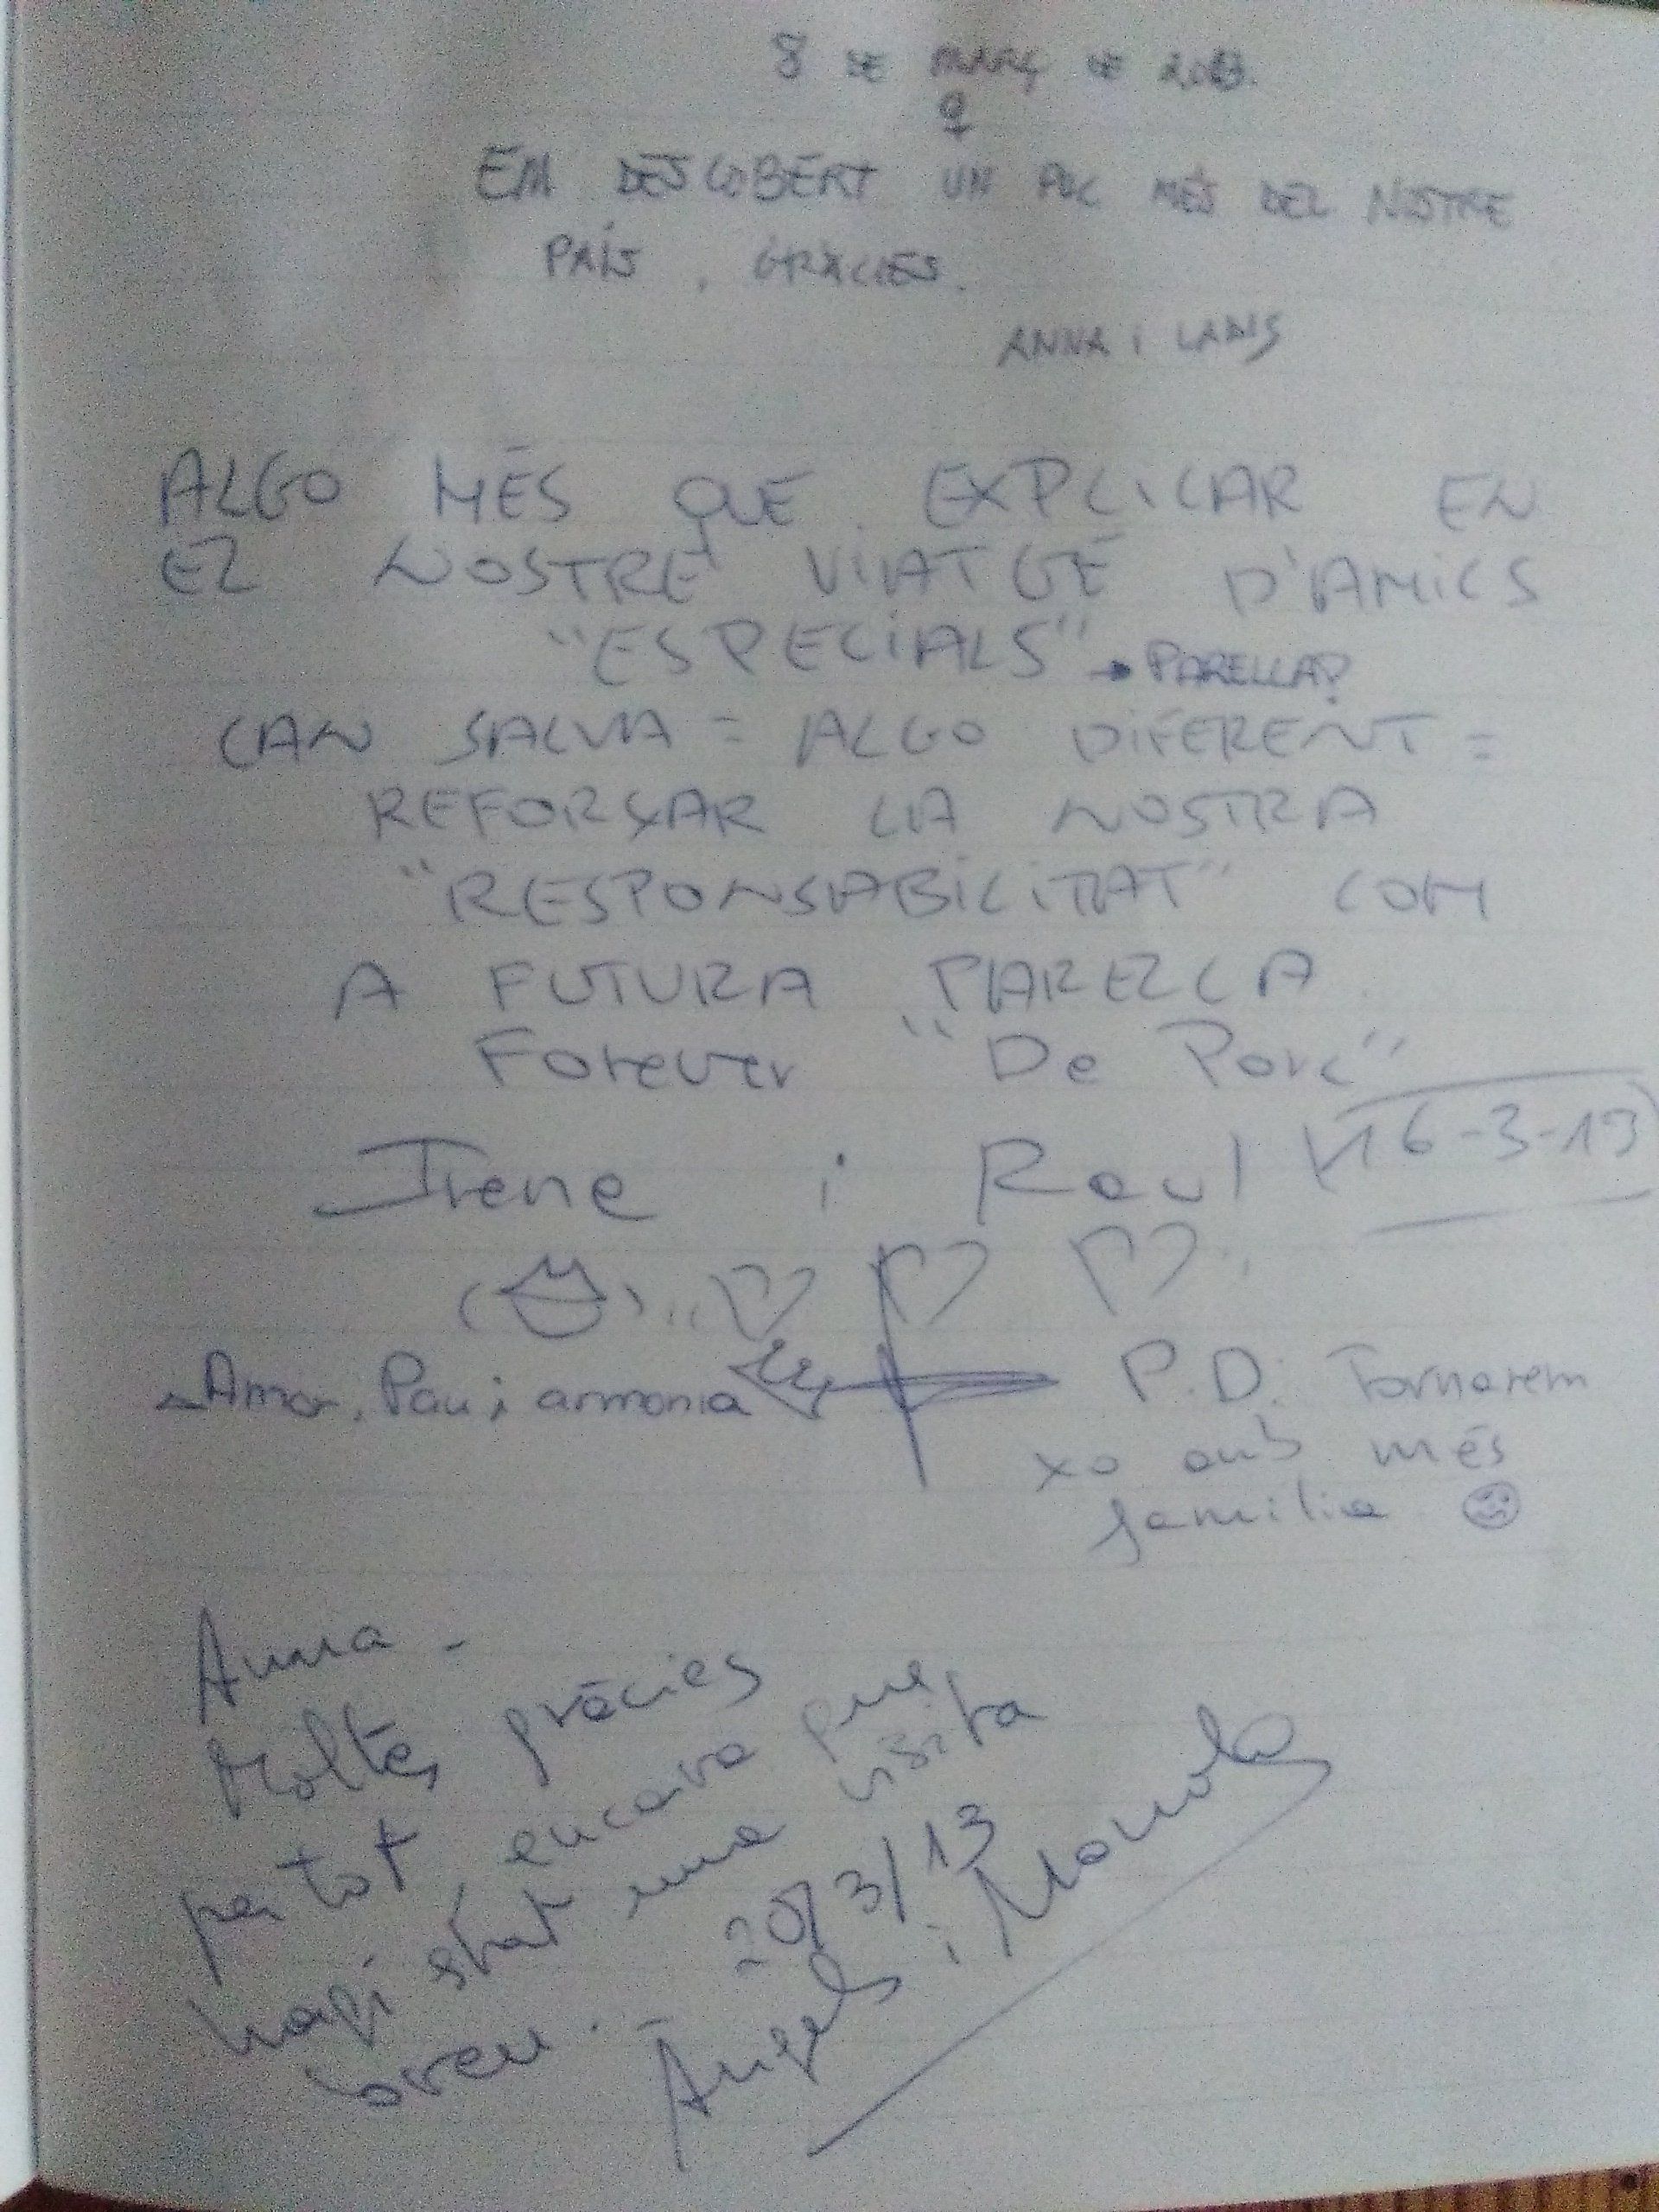 8 DE MARÇ DE 2013.
EM DESCOBERT UN POC MÉS DEL NOSTRE
PAÍS, GRÀCIES.
ANNA i LAIS
ALGO MÉS QUE EXPLICAR EN
EL NOSTRE VIATGE D'AMICS
"ESPECIALS" → PARELLA?
CAN SALVA = ALGO DIFERENT =
REFORÇAR LA NOSTRA
"RESPONSABILITAT" COM
A FUTURA PARELLA
Forever "De Porc"
Irene i Raul 16-3-13
Amor, Pau i armonia
P.D. Tornarem
xo amb més
familia
Anna -
Moltes gràcies
per tot, encara que
hagi estat una visita
breu.
20/3/13
Àngels i Manola